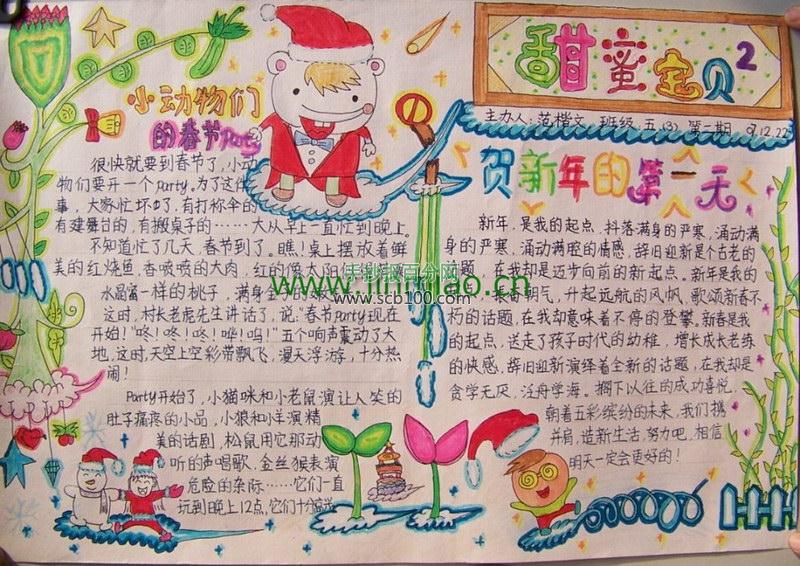 甜蜜宝贝 2
主办人:范楷文 班级 五(3) 第二期 07.12.22
小动物们
的春节Party
很快就要到春节了,小动
物们要开一个party。为了这件
事,大家忙坏了,有打伞的
有建舞台的,有搬桌子的……大从早上一直忙到晚上。
不知道忙了几天,春节到了。瞧!桌上摆放着鲜
美的红烧鱼,香喷喷的大肉,红的像太阳
水晶富一样的桃子,满身金
这时,村长老虎先生讲话了,说:“春节party现在
开始!”“咚!咚!咚!哗!呜!”五个响声震动了大
地,这时,天空上空彩带飘飞,漫天浮游,十分热
闹!
Party开始了,小猫咪和小老鼠演让人笑的
肚子痛疼的小品,小狼和小羊演精
美的话剧,松鼠用它那动
听的声唱歌,金丝猴表演
危险的杂际……它们一直
玩到晚上12点,它们十分
贺新年的第一天
新年,是我的起点,抖落满身的严寒,涌动满
身的严寒,涌动满腔的情感,辞旧迎新是个古老的
话题,在我却是迈步向前的新起点。新年是我的
一张春朝气,升起远航的风帆,歌颂新春不
朽的话题,在我却意味着不停的登攀。新春是我
的起点,送走了孩子时代的幼稚,增长成长老练
的快感,辞旧迎新演绎着全新的话题,在我却是
贪学无厌,泛舟学海。搁下以往的成功喜悦,
朝着五彩缤纷的未来,我们携
并肩,谱新生活,努力吧,相信
明天一定会更好的!
手抄报百分网
www.scb100.com